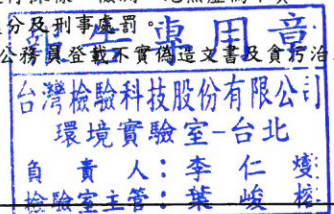 分及刑事處罰。
公務員登載不實偽造文書及貪污治
報告專用章
台灣檢驗科技股份有限公司
環境實驗室-台北
負責人:李仁燮
檢驗室主管:葉峻榕